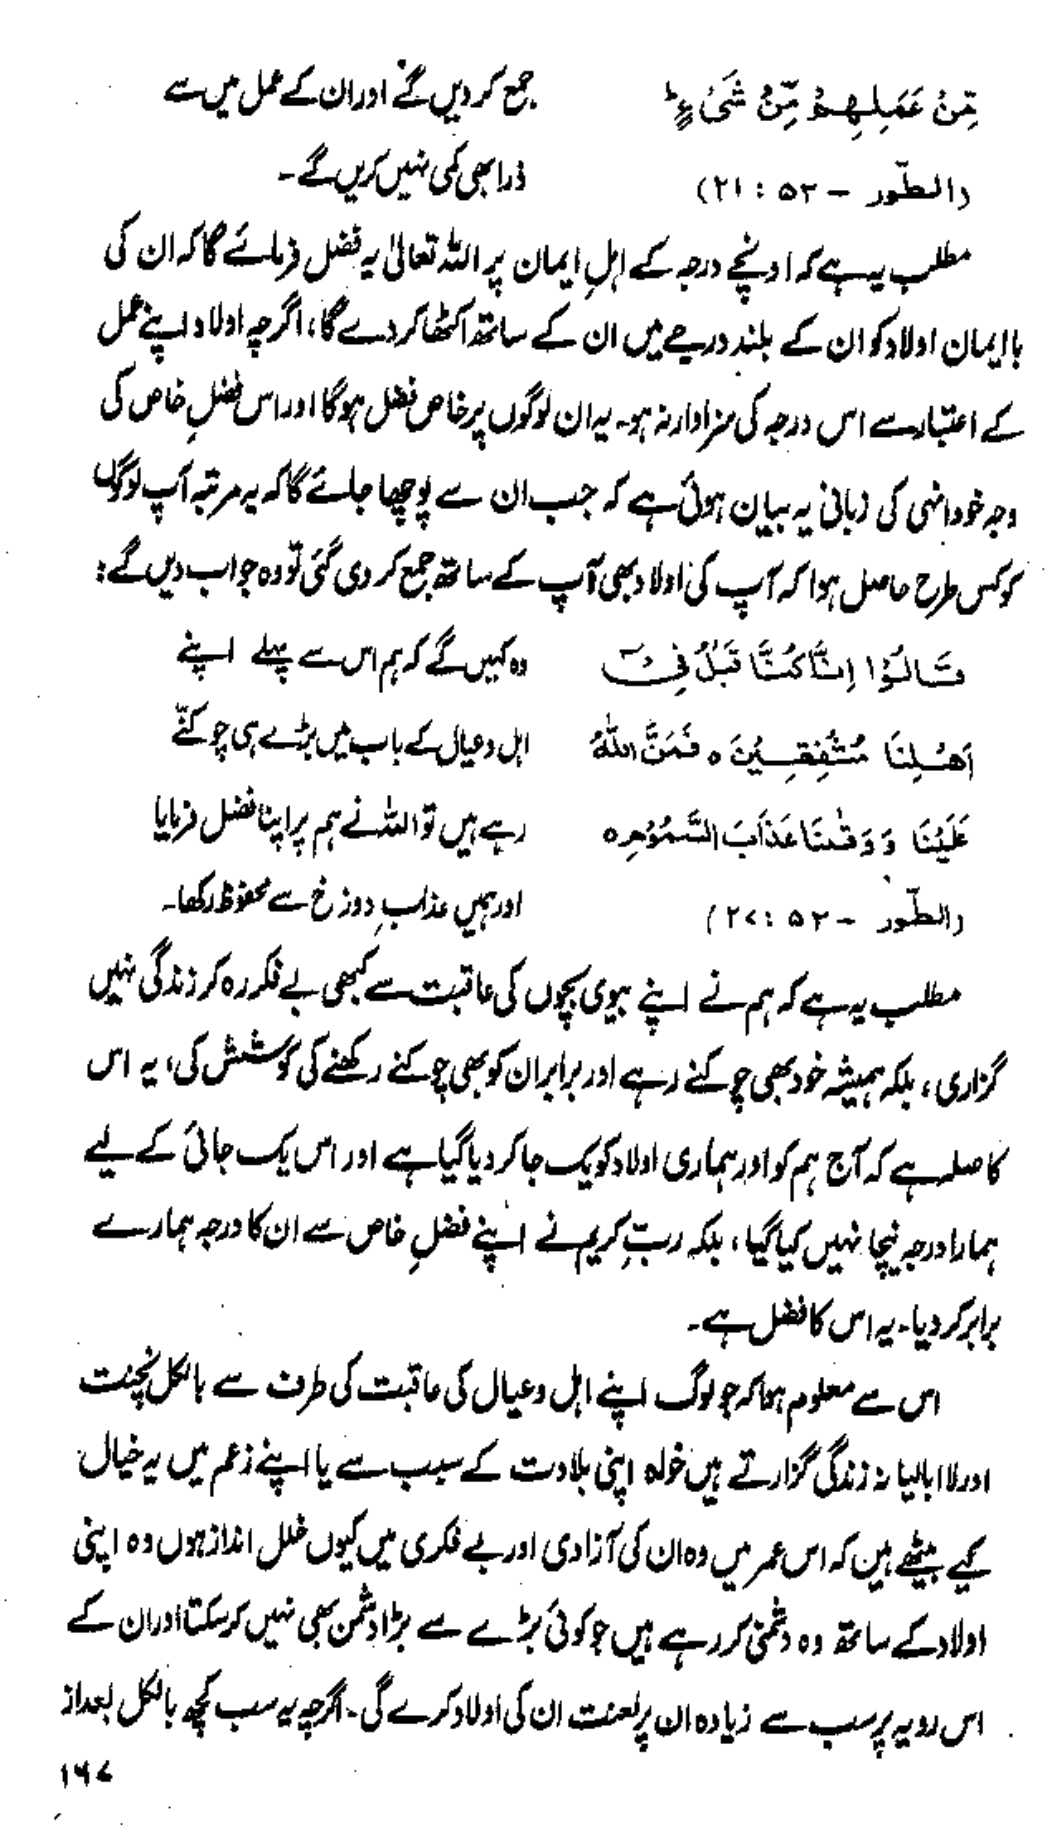 مِّنْ عَمَلِهِمْ مِّنْ شَیْءٍؕ جمع کر دیں گے اور ان کے عمل میں سے
(الطّور – ۵۲ : ۲۱) ذرا بھی کمی نہیں کریں گے۔
مطلب یہ ہے کہ اونچے درجہ کے اہلِ ایمان پر اللہ تعالیٰ یہ فضل فرمائے گا کہ ان کی
باایمان اولاد کو ان کے بلند درجے میں ان کے ساتھ اکٹھا کر دے گا، اگرچہ اولاد اپنے عمل
کے اعتبار سے اس درجہ کی سزاوار نہ ہو۔ یہ ان لوگوں پر خاص فضل ہوگا اور اس فضلِ خاص کی
وجہ خود انہی کی زبانی یہ بیان ہوئی ہے کہ جب ان سے پوچھا جائے گا کہ یہ مرتبہ آپ لوگوں
کو کس طرح حاصل ہوا کہ آپ کی اولاد بھی آپ کے ساتھ جمع کر دی گئی تو وہ جواب دیں گے:
قَالُوْٓا اِنَّا كُنَّا قَبْلُ فِیْٓ وہ کہیں گے کہ ہم اس سے پہلے اپنے
اَهْلِنَا مُشْفِقِیْنَ ہ فَمَنَّ اللّٰهُ اہل و عیال کے باب میں بڑے ہی چوکنّے
عَلَیْنَا وَ وَقٰىنَا عَذَابَ السَّمُوْمِ ہ رہے ہیں تو اللہ نے ہم پر اپنا فضل فرمایا
(الطّور – ۵۲ : ۲۷) اور ہمیں عذابِ دوزخ سے محفوظ رکھا۔
مطلب یہ ہے کہ ہم نے اپنے بیوی بچوں کی عاقبت سے کبھی بے فکر رہ کر زندگی نہیں
گزاری، بلکہ ہمیشہ خود بھی چوکنے رہے اور برابر ان کو بھی چوکنے رکھنے کی کوشش کی، یہ اس
کا صلہ ہے کہ آج ہم کو اور ہماری اولاد کو یک جا کر دیا گیا ہے اور اس یک جائی کے لیے
ہمارا درجہ نیچا نہیں کیا گیا، بلکہ ربِّ کریم نے اپنے فضلِ خاص سے ان کا درجہ ہمارے
برابر کر دیا۔ یہ اس کا فضل ہے۔
اس سے معلوم ہوا کہ جو لوگ اپنے اہل و عیال کی عاقبت کی طرف سے بالکل نچنت
اور لاابالیانہ زندگی گزارتے ہیں خواہ اپنی بلادت کے سبب سے یا اپنے زعم میں یہ خیال
کیے بیٹھے ہیں کہ اس عمر میں وہ ان کی آزادی اور بے فکری میں کیوں خلل انداز ہوں وہ اپنی
اولاد کے ساتھ وہ دشمنی کر رہے ہیں جو کوئی بڑے سے بڑا دشمن بھی نہیں کر سکتا اور ان کے
اس رویہ پر سب سے زیادہ ان پر لعنت ان کی اولاد کرے گی۔ اگرچہ یہ سب کچھ بالکل بعد از
۱۶۷